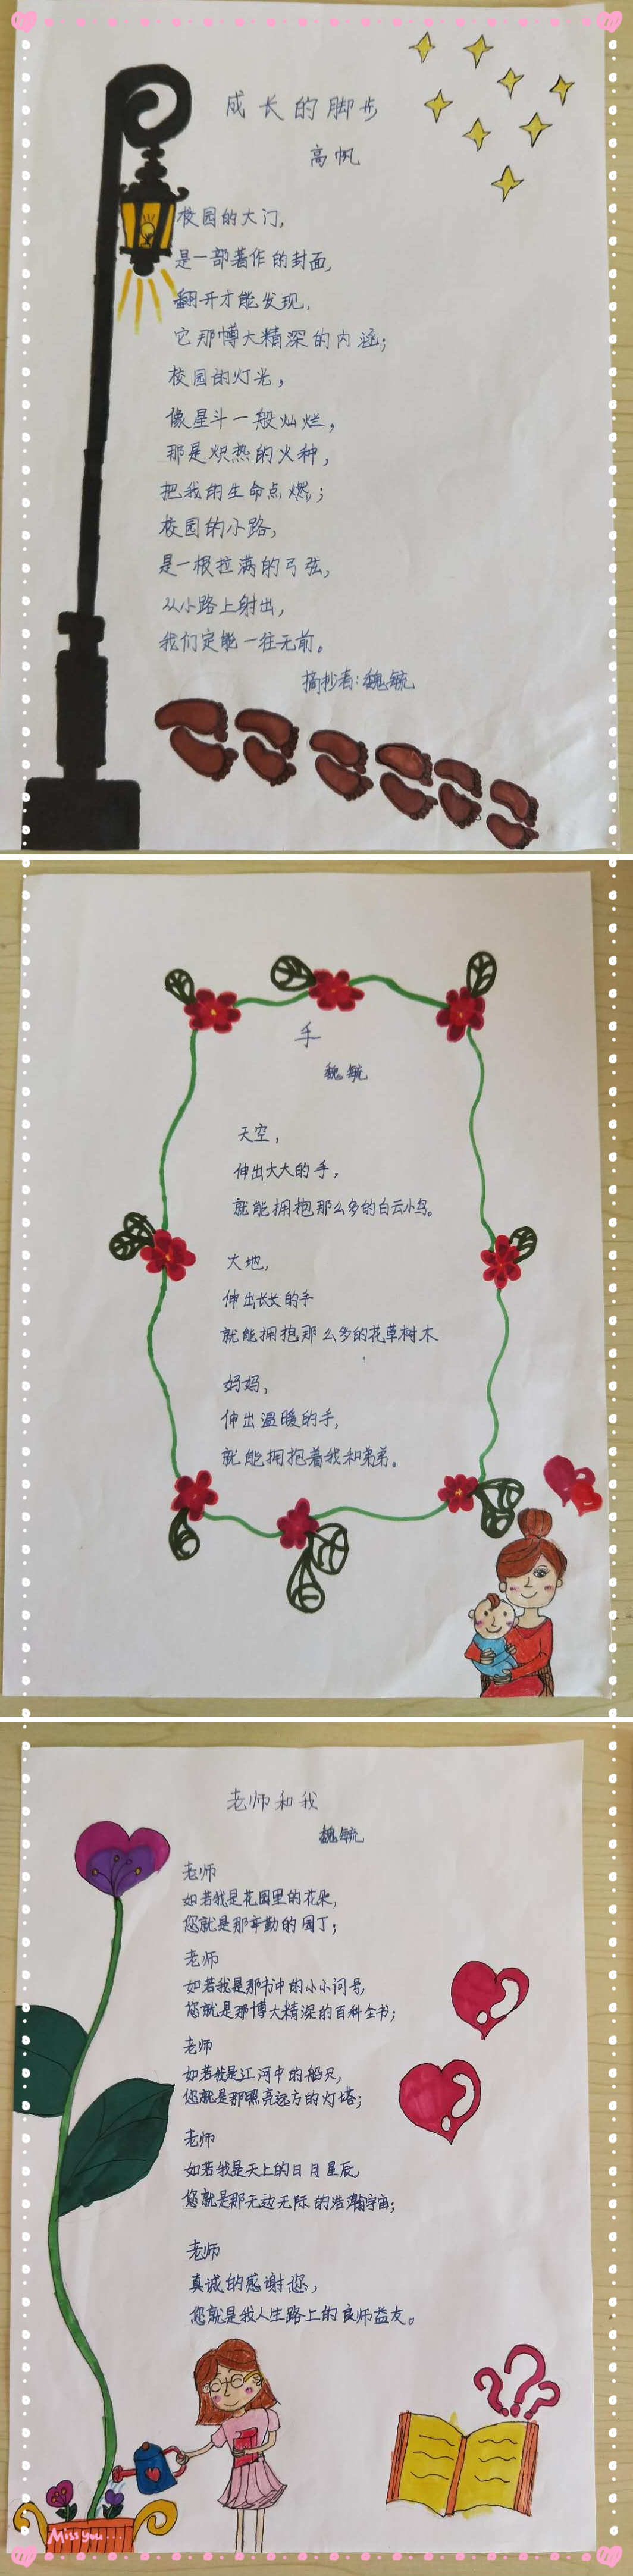 成长的脚步
高帆
校园的大门,
是一部著作的封面,
翻开才能发现,
它那博大精深的内涵;
校园的灯光,
像星斗一般灿烂,
那是炽热的火种,
把我的生命点燃;
校园的小路,
是一根拉满的弓弦,
从小路上射出,
我们定能一往无前。
摘抄者:魏毓
手
魏毓
天空,
伸出大大的手,
就能拥抱那么多的白云小鸟。
大地,
伸出长长的手
就能拥抱那么多的花草树木
妈妈,
伸出温暖的手,
就能拥抱着我和弟弟。
老师和我
魏毓
老师
如若我是花园里的花朵,
您就是那辛勤的园丁;
老师
如若我是那书中的小小问号,
您就是那博大精深的百科全书;
老师
如若我是江河中的船只,
您就是那照亮远方的灯塔;
老师
如若我是天上的日月星辰,
您就是那无边无际的浩瀚宇宙;
老师
真诚的感谢您,
您就是我人生路上的良师益友。
Miss you...